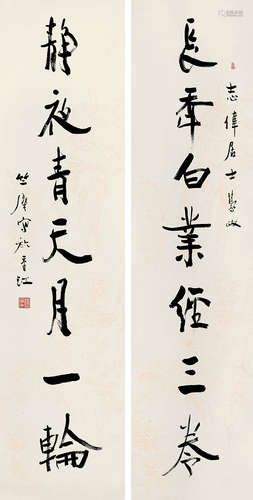 志偉居士慧政
長秊白業經三卷
靜夜青天月一輪
竺摩寫於香江